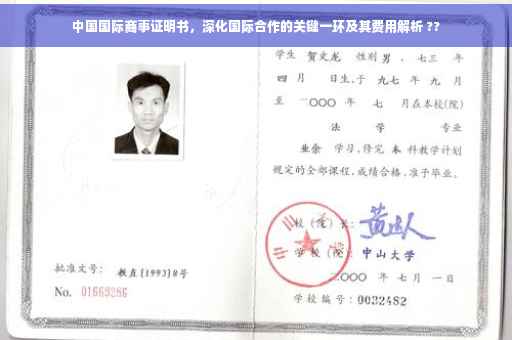 中国国际商事证明书，深化国际合作的关键一环及其费用解析 ??
学生 贺文龙 性别 男 、七三 年
四 月 日生,于 九七 年 九 月
至 二〇〇〇 年 七 月在本校(院)
法 学 专业
业余 学习,修完 本 科教学计划
规定的全部课程,成绩合格,准予毕业。
校(院)长:
学校(院): 中山大学
二〇〇〇 年 七 月 一 日
学校编号: 0032482
批准文号: 教直[1993]8号
No. 01663286